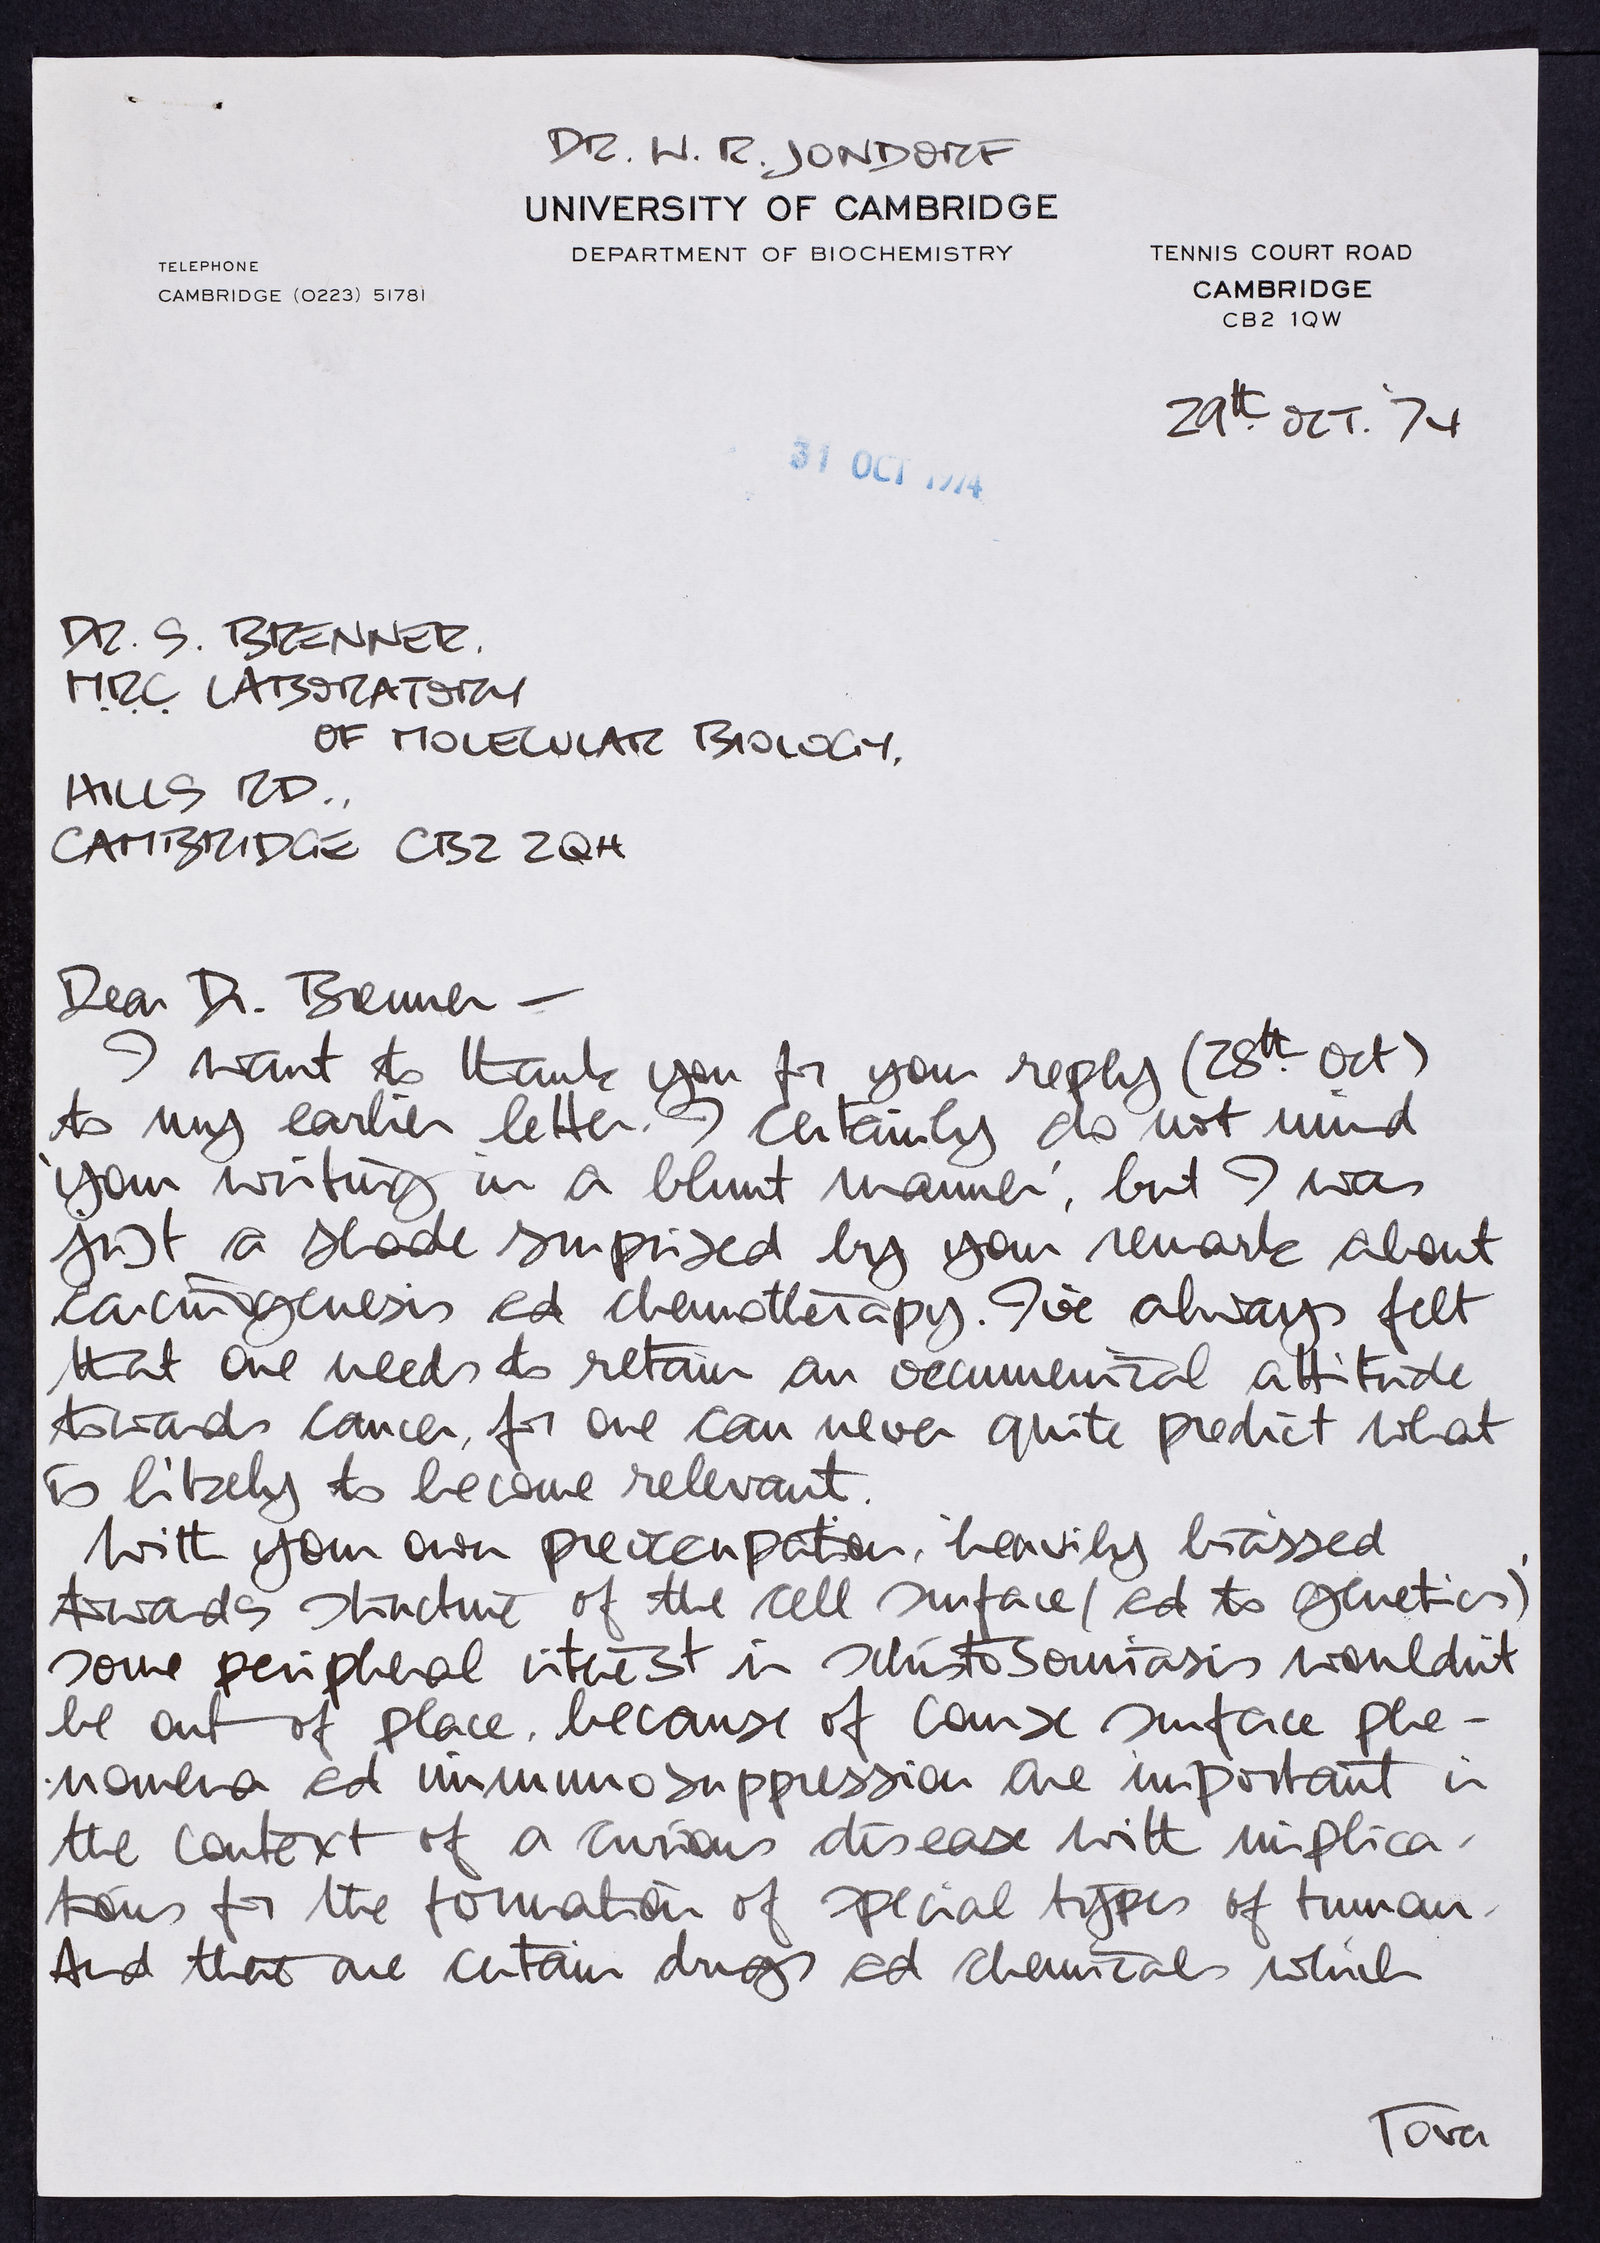 DR. W. R. JONDORF
UNIVERSITY OF CAMBRIDGE
DEPARTMENT OF BIOCHEMISTRY
TELEPHONE
CAMBRIDGE (0223) 51781
TENNIS COURT ROAD
CAMBRIDGE
CB2 1QW
29th. OCT. '74
31 OCT 1974
DR. S. BRENNER.
M.R.C. LABORATORY
OF MOLECULAR BIOLOGY,
HILLS RD.,
CAMBRIDGE CB2 2QH
Dear Dr. Brenner —
I want to thank you for your reply (28th. Oct)
to my earlier letter. I certainly do not mind
'your writing in a blunt manner', but I was
just a shade surprised by your remark about
carcinogenesis ed chemotherapy. I've always felt
that one needs to retain an oecumenical attitude
towards cancer, for one can never quite predict what
is likely to become relevant.
With your own preoccupation, 'heavily biassed
towards structure of the cell surface (ed to genetics)'
some peripheral interest in schistosomiasis wouldn't
be out of place, because of course surface phe-
nomena ed immunosuppression are important in
the context of a curious disease with implica-
tions for the formation of special types of tumour.
And there are certain drugs ed chemicals which